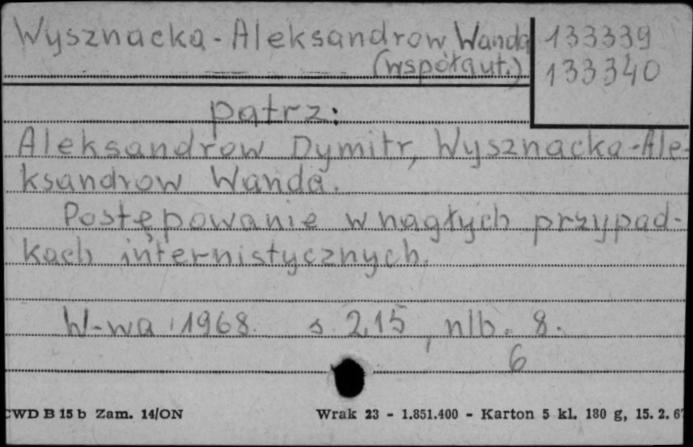 Wysznacka - Aleksandrow Wanda 133339
(współaut.) 133340
patrz:
Aleksandrow Dymitr, Wysznacka-Ale-
ksandrow Wanda.
Postępowanie w nagłych przypad-
kach internistycznych.
W-wa 1968. s. 215, nlb. 8.
6
CWD B 15 b Zam. 14/ON Wrak 23 - 1.851.400 - Karton 5 kl. 180 g, 15. 2. 67